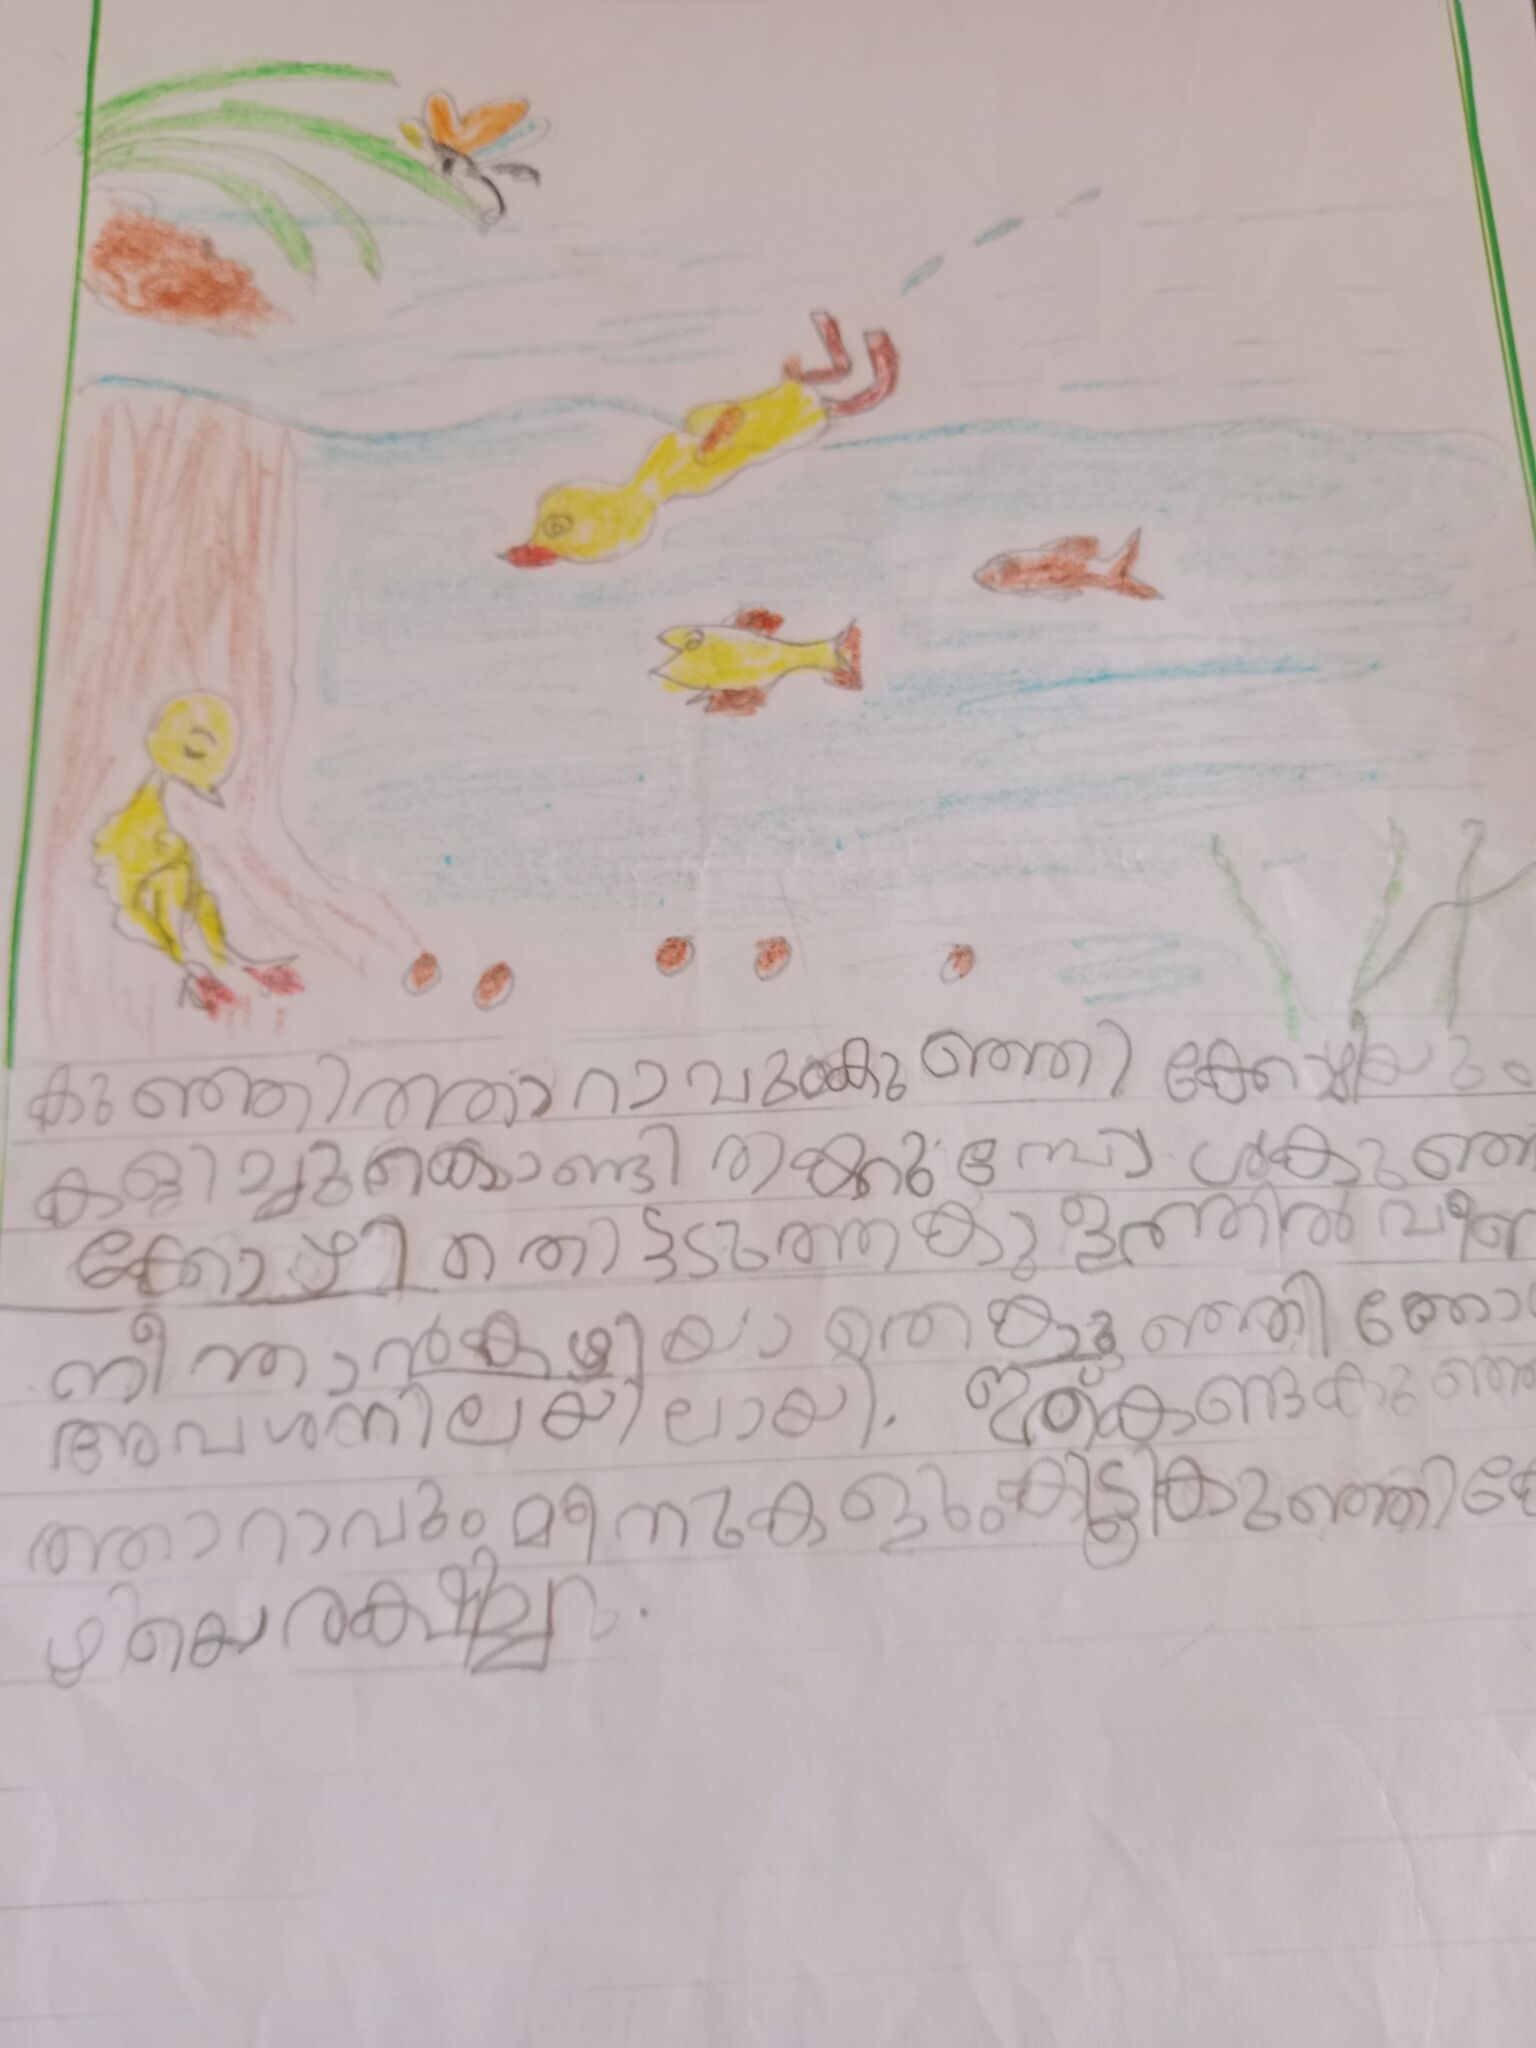 കുഞ്ഞിത്താറാവുംകുഞ്ഞി ക്കോഴിയും
കളിച്ചുകൊണ്ടി രിക്കുമ്പോ ൾകുഞ്ഞി
ക്കോഴി തൊട്ടടുത്തകുളത്തിൽ വീണു
നീന്താൻകഴിയാ തെകുഞ്ഞി ക്കോ
അവശനിലയിലായി. ഇത്കണ്ടകുഞ്ഞി
ത്താറാവും മീനുകളുംകൂട്ടികുഞ്ഞിക്കോ
ഴിയെ രക്ഷിച്ചു.